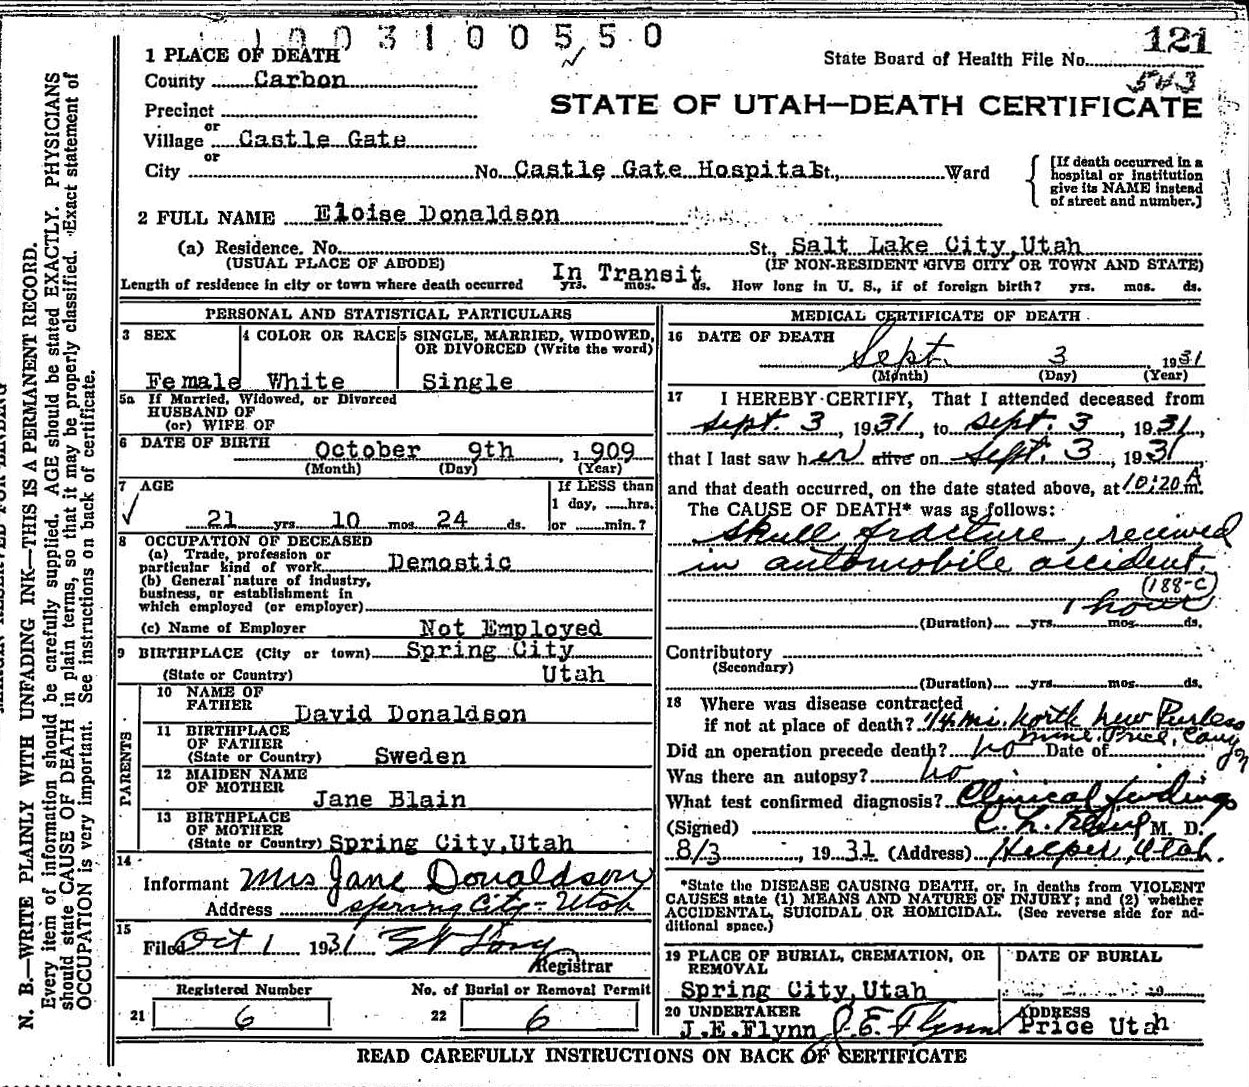 1003100550
121
1 PLACE OF DEATH
State Board of Health File No.
543
County Carbon
STATE OF UTAH—DEATH CERTIFICATE
Precinct
or
Village Castle Gate
or
City No. Castle Gate Hospital St., Ward
[If death occurred in a
hospital or institution
give its NAME instead
of street and number.]
2 FULL NAME Eloise Donaldson
(a) Residence. No. St., Salt Lake City, Utah
(USUAL PLACE OF ABODE) (IF NON-RESIDENT GIVE CITY OR TOWN AND STATE)
Length of residence in city or town where death occurred In Transit yrs. mos. ds. How long in U. S., if of foreign birth? yrs. mos. ds.
PERSONAL AND STATISTICAL PARTICULARS
3 SEX 4 COLOR OR RACE 5 SINGLE, MARRIED, WIDOWED,
OR DIVORCED (Write the word)
Female White Single
5a If Married, Widowed, or Divorced
HUSBAND OF
(or) WIFE OF
6 DATE OF BIRTH October 9th, 1909
(Month) (Day) (Year)
7 AGE If LESS than
1 day, hrs.
21 yrs. 10 mos. 24 ds. or min.?
8 OCCUPATION OF DECEASED
(a) Trade, profession or
particular kind of work Demostic
(b) General nature of industry,
business, or establishment in
which employed (or employer)
(c) Name of Employer Not Employed
9 BIRTHPLACE (City or town) Spring City
(State or Country) Utah
PARENTS
10 NAME OF
FATHER David Donaldson
11 BIRTHPLACE
OF FATHER
(State or Country) Sweden
12 MAIDEN NAME
OF MOTHER
Jane Blain
13 BIRTHPLACE
OF MOTHER
(State or Country) Spring City, Utah
14
Informant Mrs Jane Donaldson
Address Spring City - Utah
15
Filed Oct 1 1931
Registrar
Registered Number No. of Burial or Removal Permit
21 6 22 6
MEDICAL CERTIFICATE OF DEATH
16 DATE OF DEATH
Sept. 3 1931
(Month) (Day) (Year)
17 I HEREBY CERTIFY, That I attended deceased from
Sept. 3, 1931, to Sept. 3, 1931,
that I last saw her alive on Sept. 3, 1931,
and that death occurred, on the date stated above, at 10:20 A m.
The CAUSE OF DEATH* was as follows:
Skull fracture, received
in automobile accident.
(188-C)
1 hour
(Duration) yrs. mos. ds.
Contributory
(Secondary)
(Duration) yrs. mos. ds.
18 Where was disease contracted
if not at place of death? 1/4 mi. North New Peerless
mine. Price, Canyon
Did an operation precede death? No Date of
Was there an autopsy? No
What test confirmed diagnosis? Clinical findings
(Signed) C. H. M. D.
8/3, 1931 (Address) Helper, Utah.
*State the DISEASE CAUSING DEATH, or, in deaths from VIOLENT
CAUSES state (1) MEANS AND NATURE OF INJURY; and (2) whether
ACCIDENTAL, SUICIDAL OR HOMICIDAL. (See reverse side for ad-
ditional space.)
19 PLACE OF BURIAL, CREMATION, OR
REMOVAL
DATE OF BURIAL
Spring City, Utah 19
20 UNDERTAKER ADDRESS
J.E.Flynn J. E. Flynn Price Utah
READ CAREFULLY INSTRUCTIONS ON BACK OF CERTIFICATE
N. B.—WRITE PLAINLY WITH UNFADING INK—THIS IS A PERMANENT RECORD.
Every item of information should be carefully supplied. AGE should be stated EXACTLY. PHYSICIANS
should state CAUSE OF DEATH in plain terms, so that it may be properly classified. Exact statement of
OCCUPATION is very important. See instructions on back of certificate.